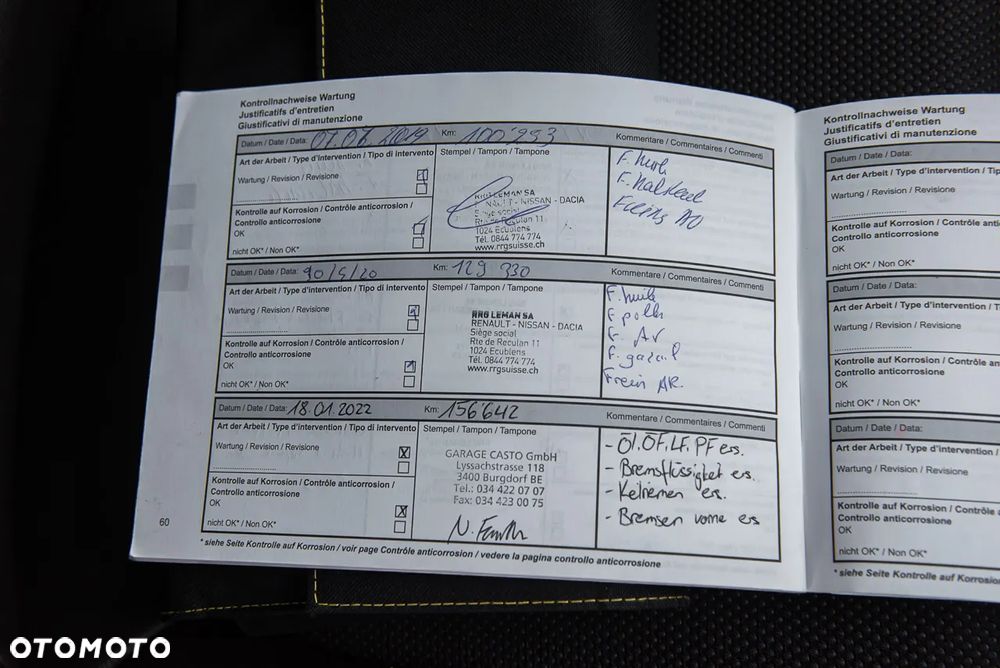 Kontrollnachweise Wartung
Justificatifs d'entretien
Giustificativi di manutenzione
Datum / Date / Data: 07.06.2019 Km: 100'293 Kommentare / Commentaires / Commenti
Art der Arbeit / Type d'intervention / Tipo di intervento Stempel / Tampon / Tampone
Wartung / Revision / Revisione
Kontrolle auf Korrosion / Contrôle anticorrosion /
Controllo anticorrosione
OK
nicht OK* / Non OK*
RRG LEMAN SA
RENAULT - NISSAN - DACIA
Siège social
Rte de Reculan 11
1024 Ecublens
Tél. 0844 774 774
www.rrgsuisse.ch
F.
F.
Freins
Datum / Date / Data: Km: 129 330 Kommentare / Commentaires / Commenti
Art der Arbeit / Type d'intervention / Tipo di intervento Stempel / Tampon / Tampone
Wartung / Revision / Revisione
Kontrolle auf Korrosion / Contrôle anticorrosion /
Controllo anticorrosione
OK
nicht OK* / Non OK*
RRG LEMAN SA
RENAULT - NISSAN - DACIA
Siège social
Rte de Reculan 11
1024 Ecublens
Tél. 0844 774 774
www.rrgsuisse.ch
F. huile
F. pollen
F. Air
F. gazoil
Frein AR.
Datum / Date / Data: 18.01.2022 Km: 156'642 Kommentare / Commentaires / Commenti
Art der Arbeit / Type d'intervention / Tipo di intervento Stempel / Tampon / Tampone
Wartung / Revision / Revisione
X
Kontrolle auf Korrosion / Contrôle anticorrosion /
Controllo anticorrosione
OK
X
nicht OK* / Non OK*
GARAGE CASTO GmbH
Lyssachstrasse 118
3400 Burgdorf BE
Tel.: 034 422 07 07
Fax: 034 423 00 75
- Öl.ÖF.LF.PF ers.
- Bremsflüssigkeit ers.
- Keilriemen ers.
- Bremsen vorne ers
60
* siehe Seite Kontrolle auf Korrosion / voir page Contrôle anticorrosion / vedere la pagina controllo anticorrosione
Kontrollnachweise Wartung
Justificatifs d'entretien
Giustificativi di manutenzione
Datum / Date / Data:
Art der Arbeit / Type d'intervention / Tip
Wartung / Revision / Revisione
Kontrolle auf Korrosion / Contrôle an
Controllo anticorrosione
OK
nicht OK* / Non OK*
Datum / Date / Data:
Art der Arbeit / Type d'intervention / T
Wartung / Revision / Revisione
Kontrolle auf Korrosion / Contrôle an
Controllo anticorrosione
OK
nicht OK* / Non OK*
Datum / Date / Data:
Art der Arbeit / Type d'intervention / T
Wartung / Revision / Revisione
Kontrolle auf Korrosion / Contrôle a
Controllo anticorrosione
OK
nicht OK* / Non OK*
* siehe Seite Kontrolle auf Korrosion
OTOMOTO